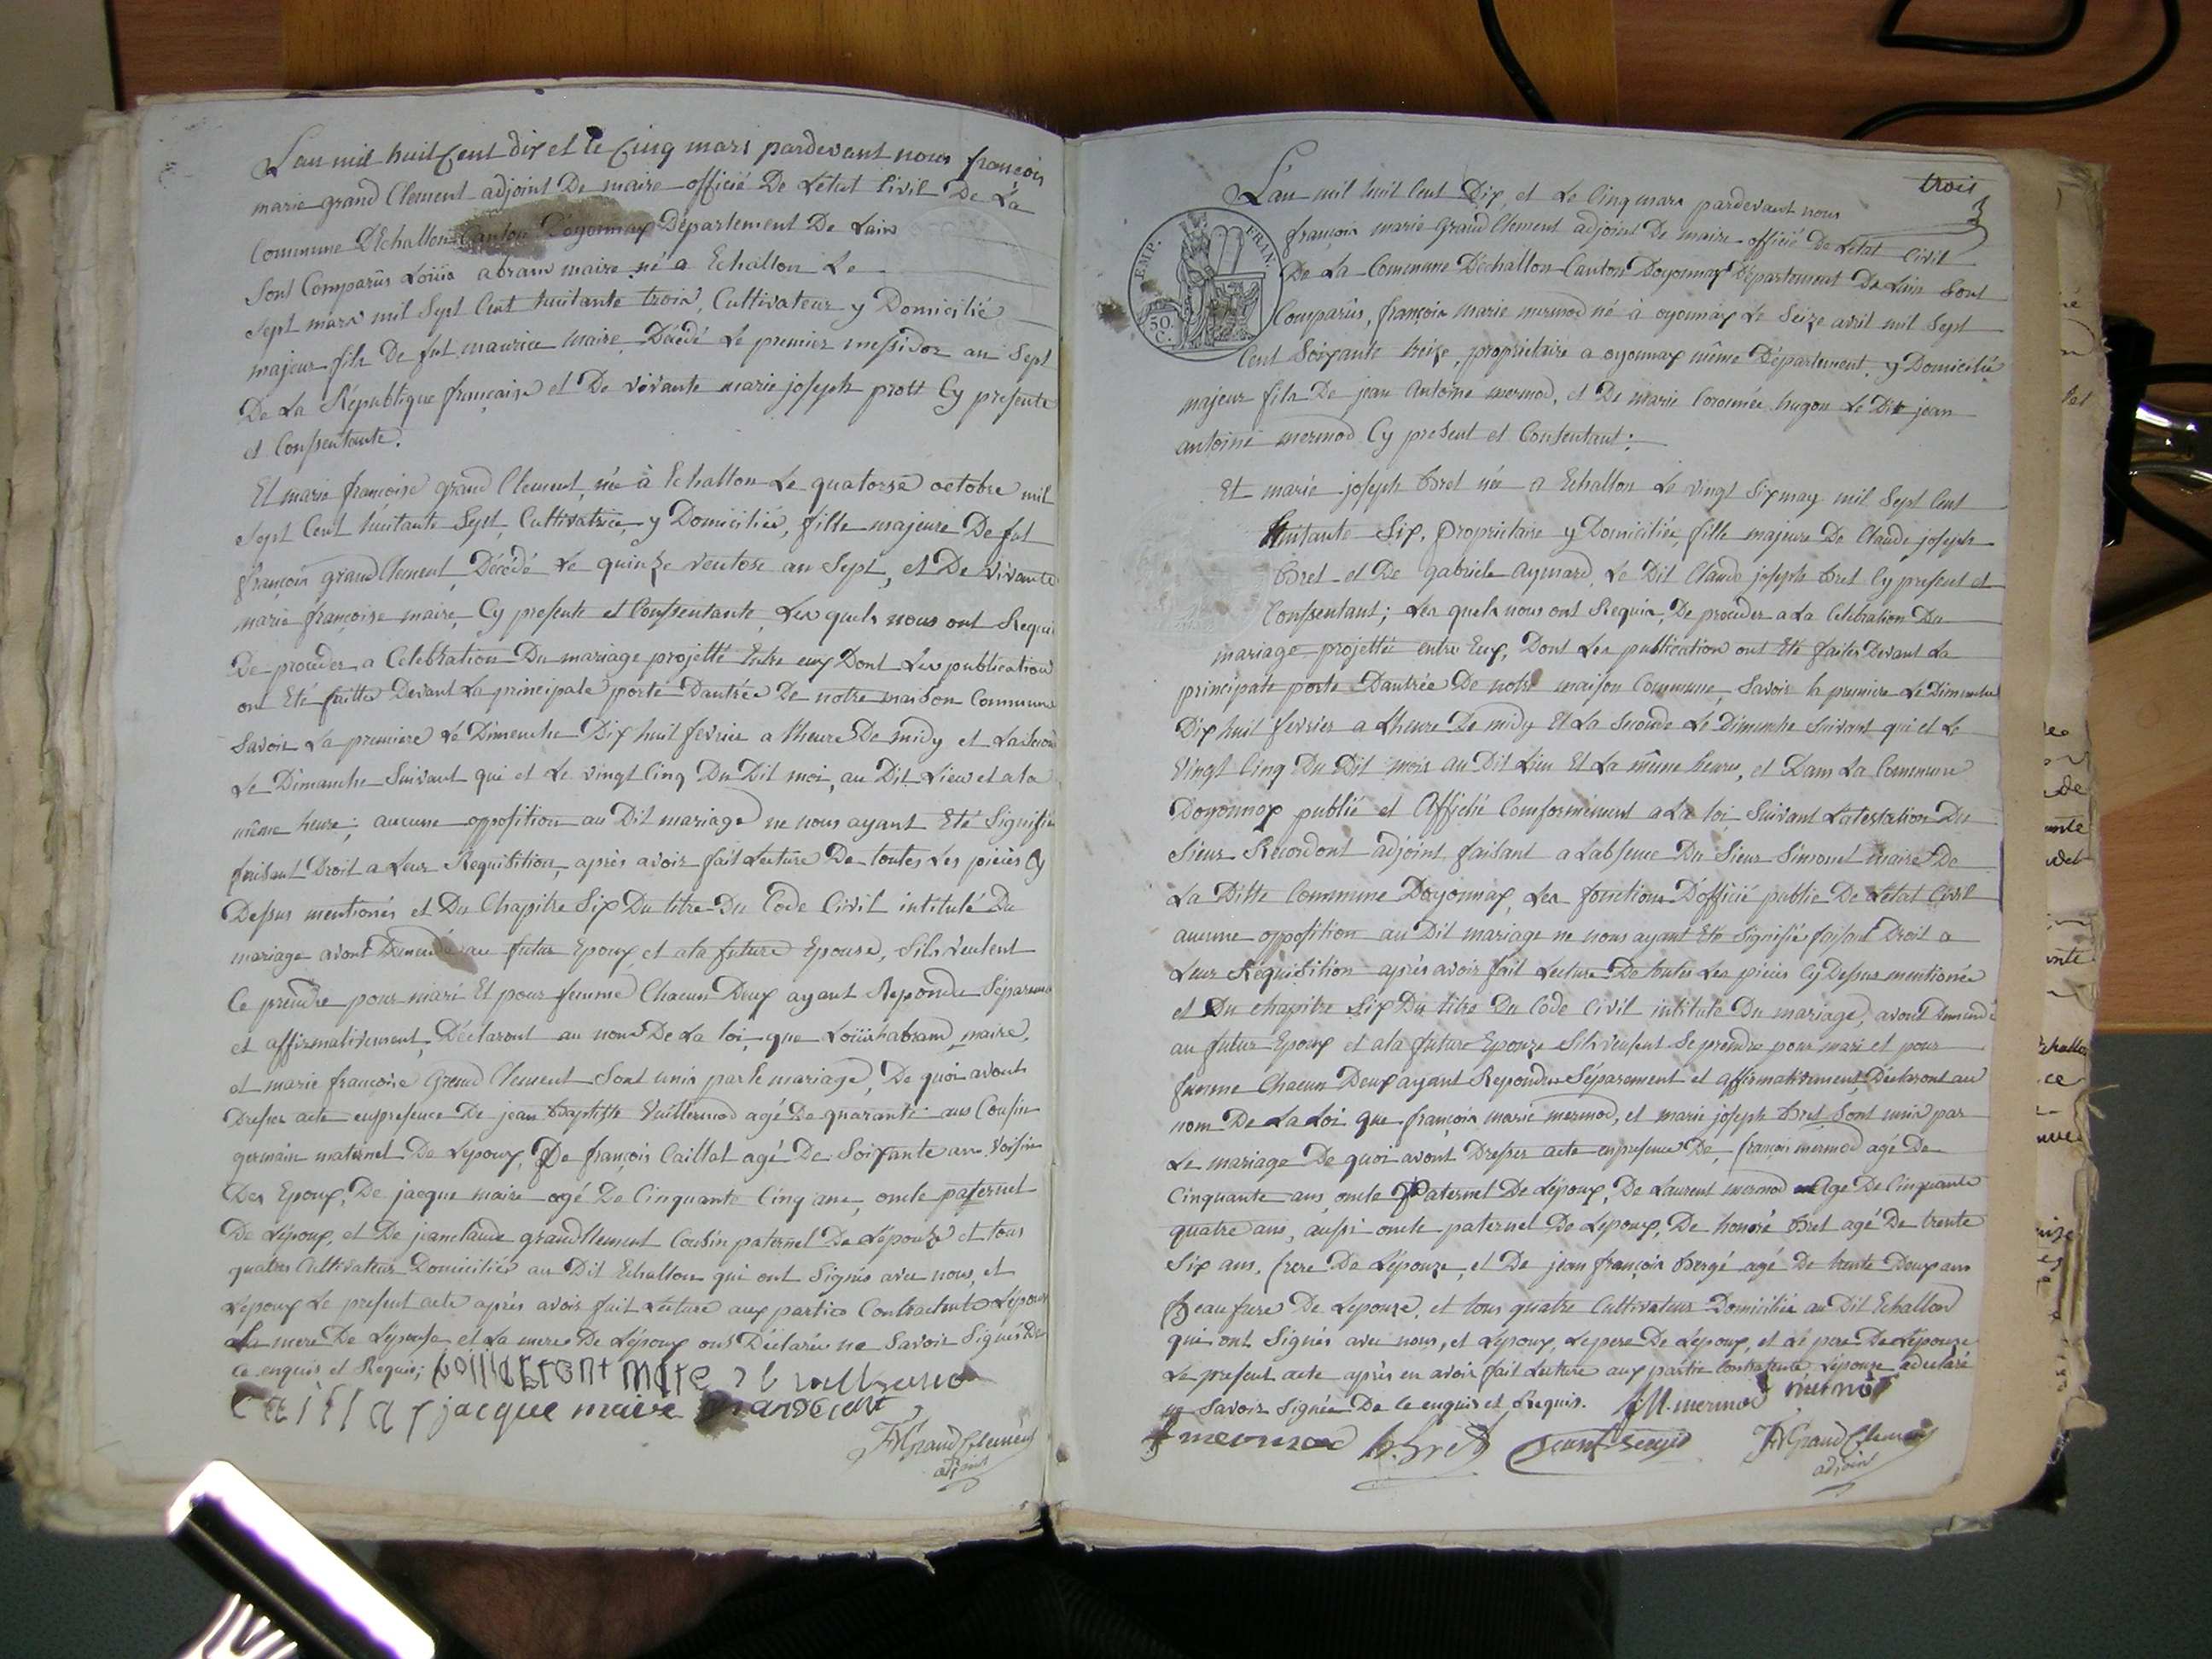 L'an mil huit Cent dix et le Cinq mars pardevant nous françois
marie grand Clement adjoint De maire officié De L'état Civil De La
Commune D'Echallon Canton D'oyonnax Département De Lain
Sont Comparûs Loüis abram maire né a Echallon Le
Sept mars mil Sept Cent huitante trois, Cultivateur y Domicilié
majeur fils De fut maurice maire Décédé Le premier messidor an Sept
De La République française et De vivante marie joseph prost Cy presente
et Consentante.
Et marie françoise grand Clement, née à Echallon Le quatorse octobre mil
Sept Cent huitante Sept, Cultivatrice y Domiciliée, fille majeure De fut
françois grand Clement, Décédé Le quinze ventose an Sept, et De vivante
marie françoise maire, Cy presente et Consentante, Les quels nous ont Requis
De proceder a Celebration Du mariage projetté Entre eux Dont Les publication
on Eté faitte Devant La principale porte Dantrée De notre maison Commune
Savoir La premiere Le Dimenche Dix huit fevrier a l'heure De midy et La Second
Le Dimanche Suivant qui et Le vingt Cinq Du Dit moi, au Dit Lieu et a la
même heure; aucune opposition au Dit mariage ne nous ayant Eté Signifié
faisant Droit a Leur Requisition, après avoir fait Lecture De toutes Les pieces Cy
Dessus mentionés et Du Chapitre Six Du titre Du Code Civil intitulé Du
mariage avont Demendé au futur Epoux et a la future Epouse, Sils veulent
Ce prendre pour mari Et pour femme Chacun Deux ayant Repondu Séparement
et affirmativement, Déclaront au nom De La loi, que Loüis abram maire,
et marie françoise Grand Clement Sont unis par le mariage, De quoi avont
Dresser acte enpresence De jean Baptiste Vuillermod agé De quarante ans Cousin
germain maternel De L'epoux, De françois Caillat agé De Soixante ans Voisin
Des Epoux, De jacque maire agé De Cinquante Cinq ans, oncle paternel
De L'époux, et De jean claude grand Clement Cousin paternel De L'epouse et tous
quatres Cultivateur Domiciliés au Dit Echallon qui ont Signés avec nous, et
L'époux Le present acte après avoir fait Lecture aux partie Contractente L'épouse
La mere De L'épouse et La mere De L'époux ont Déclarés ne Savoir Signés De
Ce enquis et Requis;
Caillat jacque maire
FMGrandClement
adjoint
trois
3
L'an mil huit Cent Dix, et Le Cinq mars pardevant nous
françois marie Grand Clement adjoint De maire officié De L'état Civil
De La Commune D'échallon Canton Doyonnax Département De Lain Sont
Comparûs, françois marie mermod né à oyonnax Le Seize avril mil Sept
Cent Soixante treize, propriétaire a oyonnax même Département, y Domicilié
majeur fils De jean Antoine mermod, et De marie hugon Le Dit jean
antoine mermod Cy présent et Consentant;
Et marie joseph Bret née a Echallon Le vingt Six may mil Sept Cent
huitante Six, Propriétaire y Domiciliée, fille majeure De Claude joseph
Bret et De gabriele aymard, Le Dit Claude joseph Bret Cy present et
Consentant; Les quels nous ont Requis, De proceder a La Celebration Du
mariage projettée entre Eux, Dont Les publication ont Eté faites Devant La
principale porte Dantrée De notre maison Commune, Savoir la premiere Le Dimenche
Dix huit fevrier a L'heure De midy Et La Seconde Le Dimenche Suivant qui et Le
Vingt Cinq Du Dit mois au Dit Lieu Et La même heure, et Dans La Commune
Doyonnax publié et Affiché Comformément a La loi Suivant L'atestation Du
Sieur Recordont adjoint, faisant a L'absence Du Sieur Simonet maire De
La Ditte Commune Doyonnax, Les fonctions D'officié public De L'état Civil
aucune opposition au Dit mariage ne nous ayant Eté Signifié faisant Droit a
Leur Requisition après avoir fait Lecture De toutes Les pieces Cy Dessus mentionée
et Du chapitre Six Du titre Du Code Civil intitulé Du mariage, avont Demendé
au futur Epoux et a la future Epouze Sils veulent Se prendre pour mari et pour
femme Chacun Deux ayant Repondu Séparement et affirmativement, Déclaront au
nom De La Loi que françois marie mermod, et marie joseph Bret Sont unis par
Le mariage De quoi avont Dresser acte enpresence De, françois mermod agé De
Cinquante ans, oncle Paternel De L'époux, De Laurent mermod Agé De Cinquante
quatre ans, aussi oncle paternel De L'epoux, De honoré Bret agé De trente
Six ans, frere De L'épouze, et De jean françois Bergé agé De trente Deux ans
Beau frere De L'epouze, et tous quatre Cultivateur Domicilié au Dit Echallon
qui ont Signés avec nous, et L'epoux, Le pere De L'époux, et Le pere De L'épouze
Le present acte après en avoir fait Lecture aux partie Contractente L'épouze a declaré
ne Savoir Signée De Ce enquis et Requis. fM. mermod mermod
f mermod h. Bret jean f Bergé FMGrandClement
adjoint
EMP. FRAN.
50.
C.